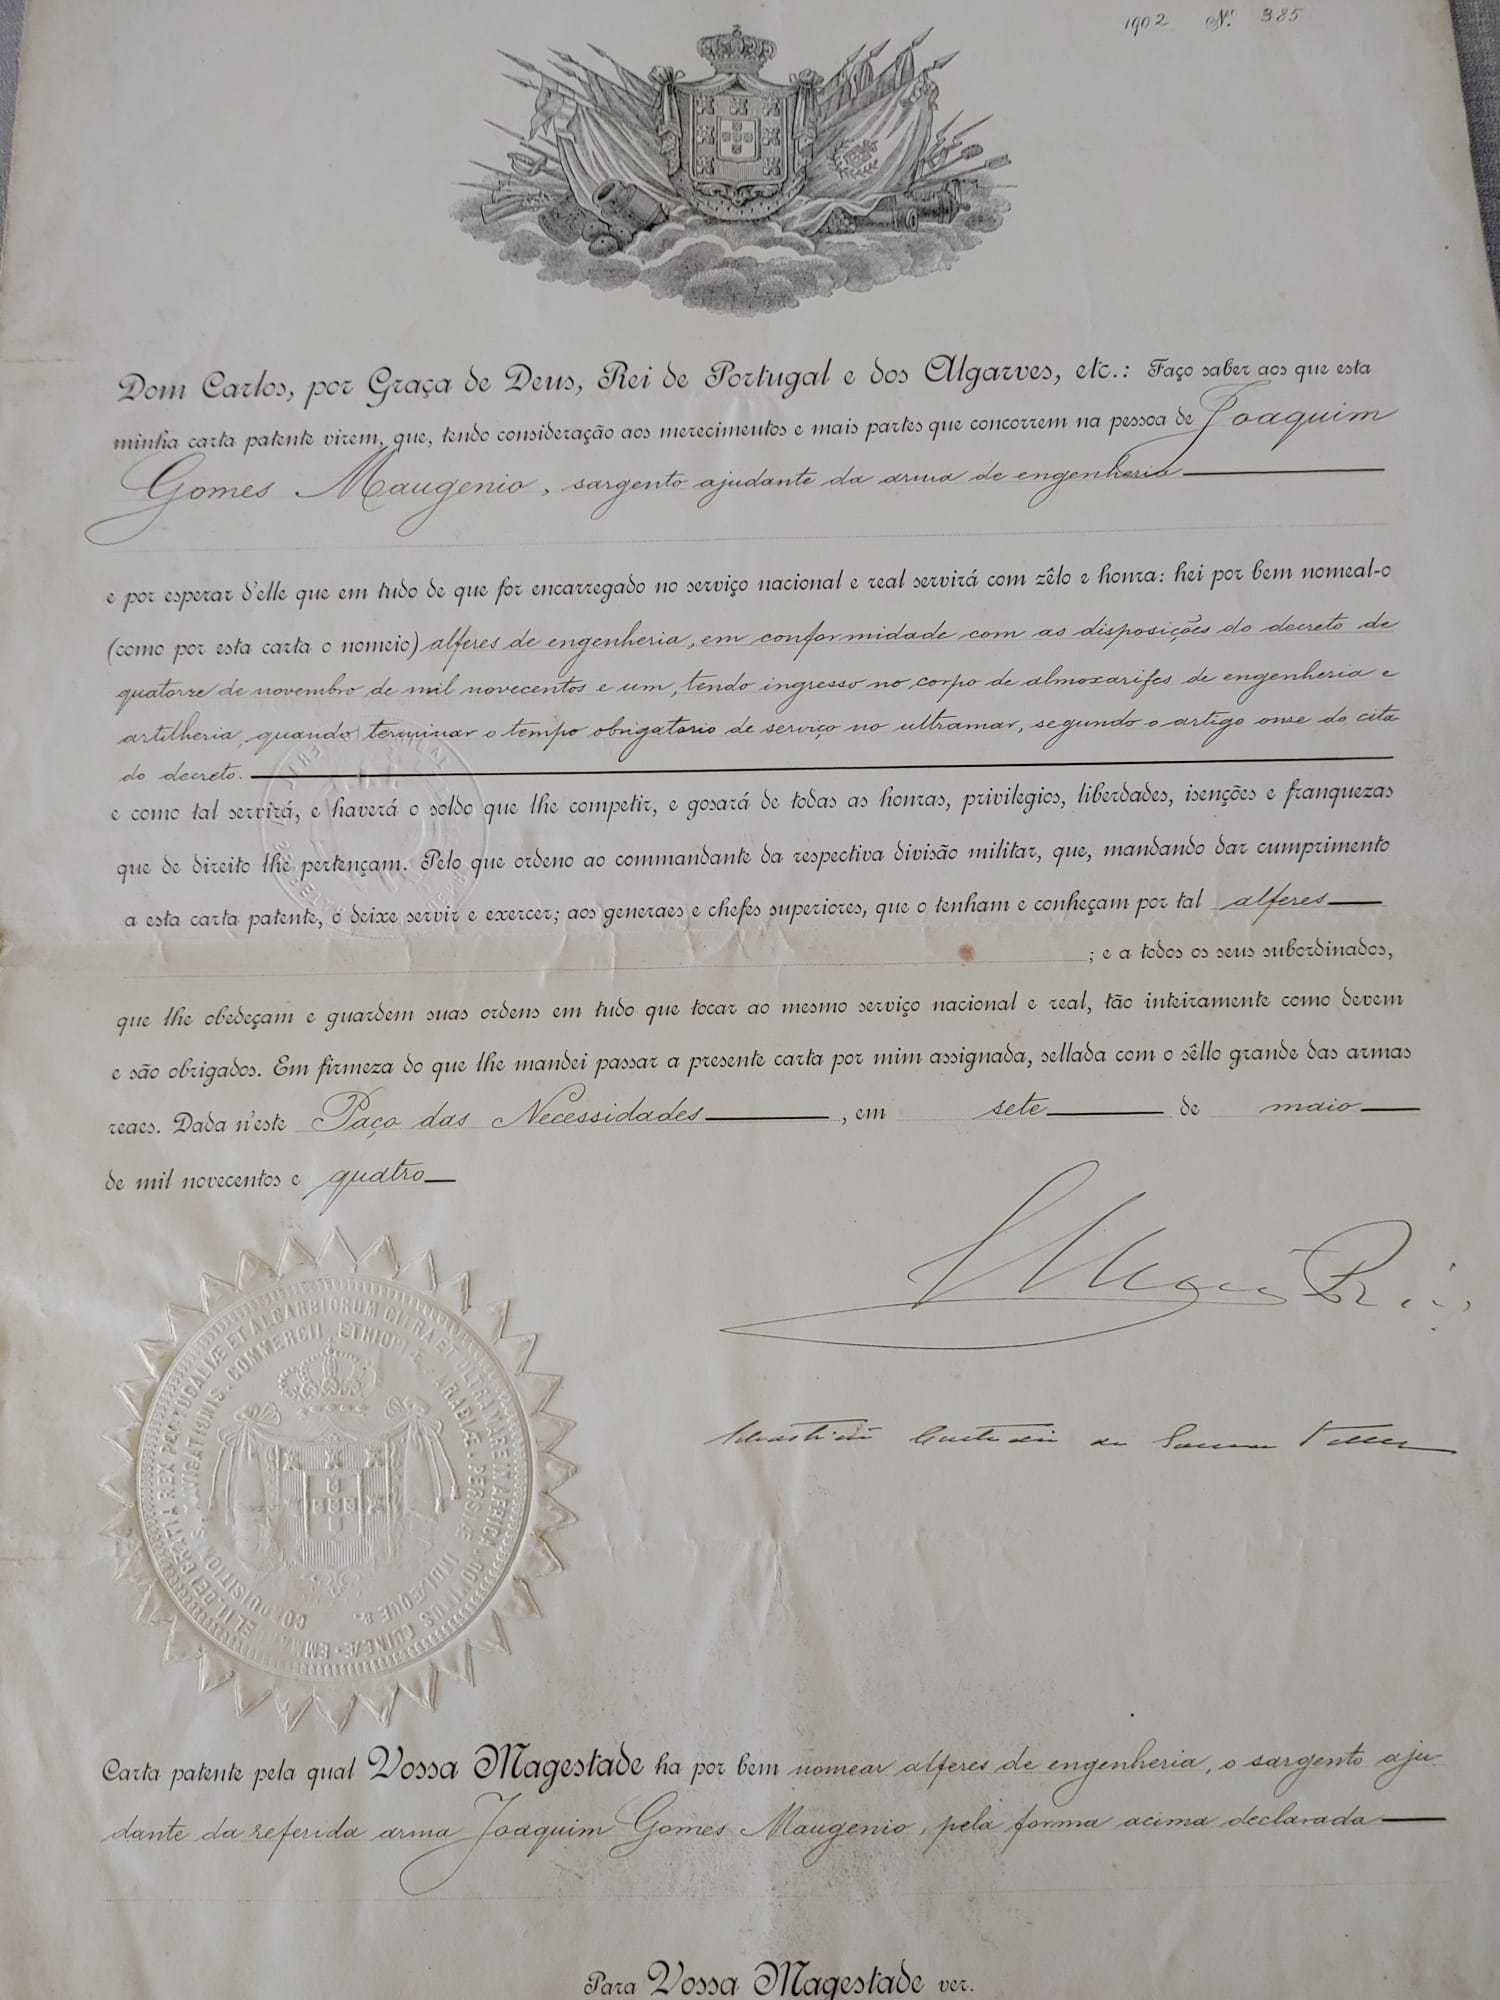 1902 Nº 385
Dom Carlos, por Graça de Deus, Rei de Portugal e dos Algarves, etc.: Faço saber aos que esta
minha carta patente virem, que, tendo consideração aos merecimentos e mais partes que concorrem na pessoa de Joaquim
Gomes Maugenio, sargento ajudante da arma de engenheria
e por esperar d'elle que em tudo de que for encarregado no serviço nacional e real servirá com zêlo e honra: hei por bem nomeal-o
(como por esta carta o nomeio) alferes de engenheria, em conformidade com as disposições do decreto de
quatorze de novembro de mil novecentos e um, tendo ingresso no corpo de almoxarifes de engenheria e
artilheria, quando terminar o tempo obrigatorio de serviço no ultramar, segundo o artigo onse do cita
do decreto.
e como tal servirá, e haverá o soldo que lhe competir, e gosará de todas as honras, privilegios, liberdades, isenções e franquezas
que de direito lhe pertençam. Pelo que ordeno ao commandante da respectiva divisão militar, que, mandando dar cumprimento
a esta carta patente, o deixe servir e exercer; aos generaes e chefes superiores, que o tenham e conheçam por tal alferes
; e a todos os seus subordinados,
que lhe obedeçam e guardem suas ordens em tudo que tocar ao mesmo serviço nacional e real, tão inteiramente como devem
e são obrigados. Em firmeza do que lhe mandei passar a presente carta por mim assignada, sellada com o sêllo grande das armas
reaes. Dada n'este Paço das Necessidades, em sete de maio
de mil novecentos e quatro
El Rei
Sebastião Custodio de Sousa Telles
GRATIA REX PORTUGALIÆ ET ALGARBIORUM CITRA ET ULTRA MARE IN AFRICA
NAVIGATIONIS. COMMERCII, ETHIOPIÆ. ARABIÆ. PERSIÆ INDIÆ QUE &.
Carta patente pela qual Vossa Magestade ha por bem nomear alferes de engenheria, o sargento aju-
dante da referida arma Joaquim Gomes Maugenio, pela forma acima declarada
Para Vossa Magestade ver.